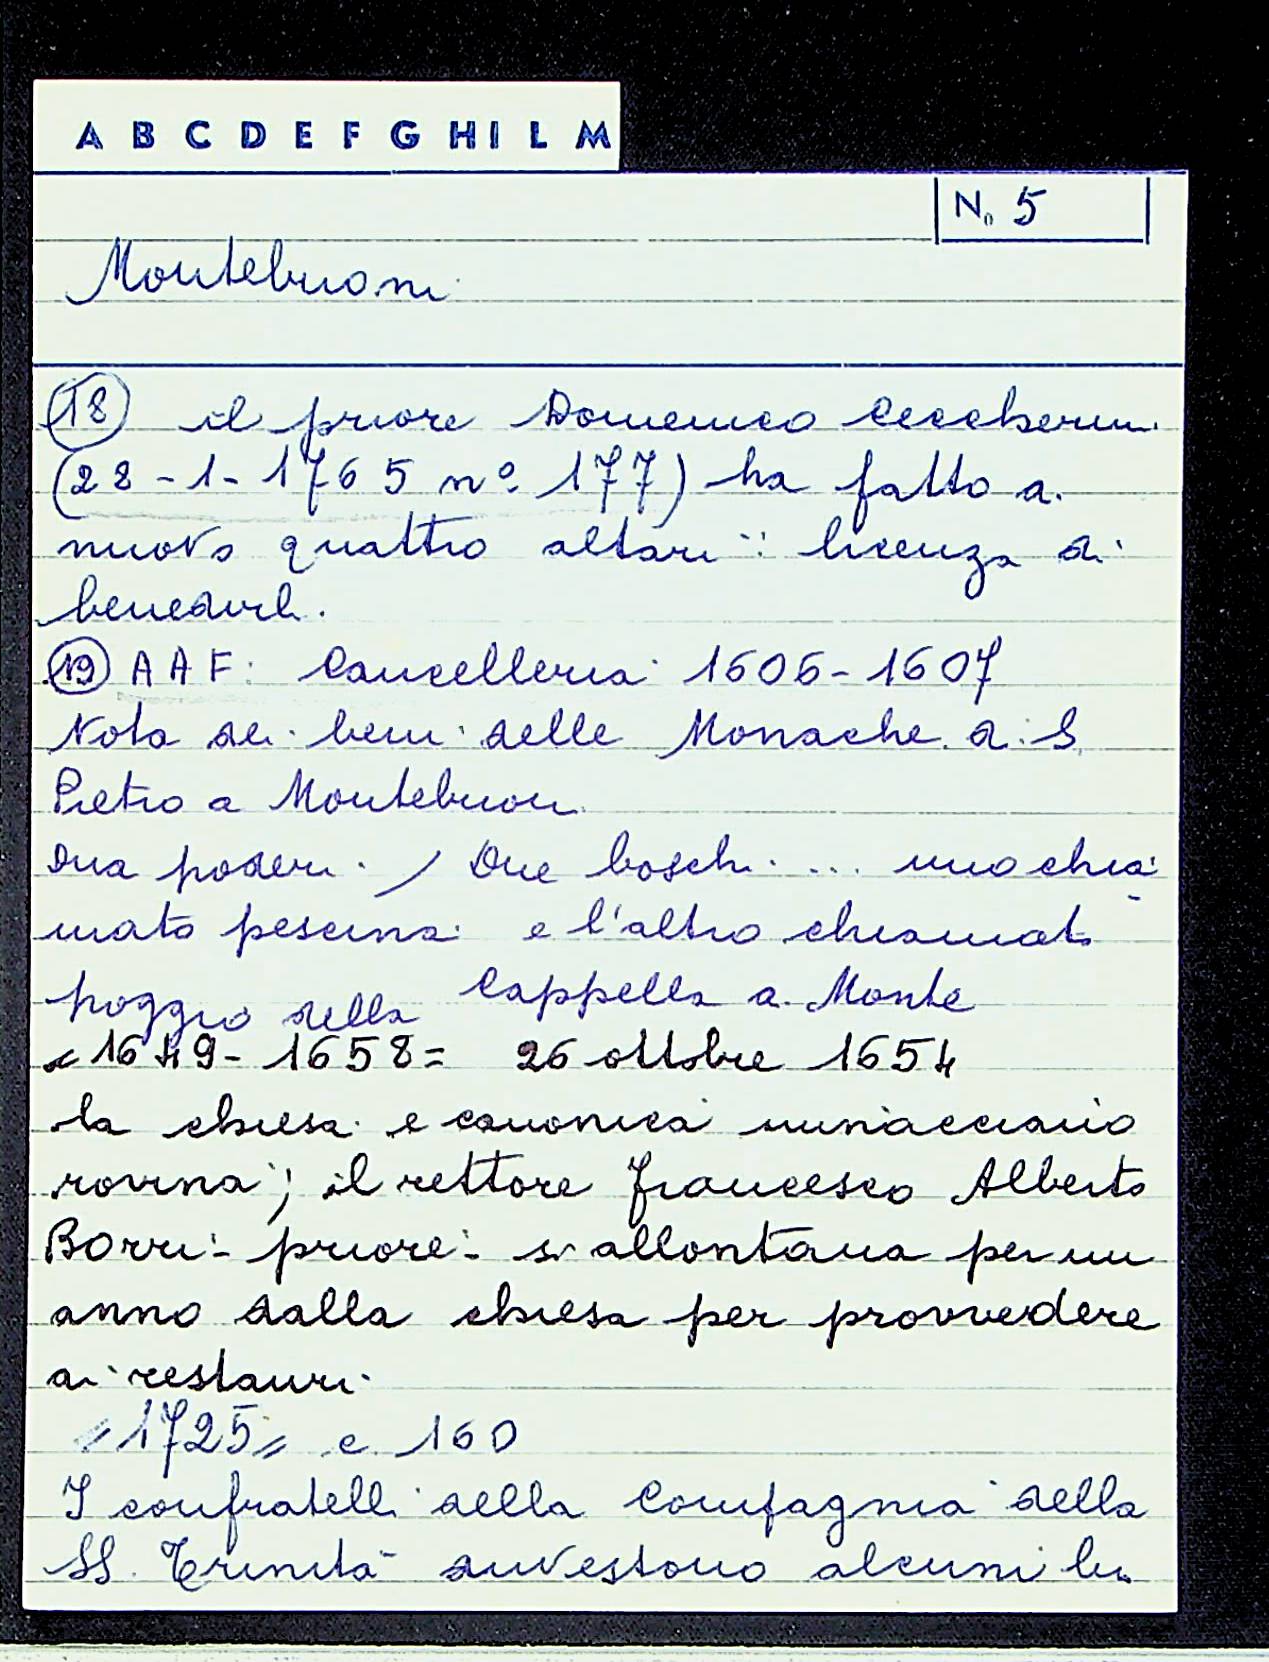 A B C D E F G H I L M
N. 5
Montebuoni
(18) il priore Domenico Ceccherini
(28-1-1765 nº 177) ha fatto di
nuovo quattro altari: licenza di
benedirli.
(19) AAF: Cancelleria 1606-1607
Nota dei beni delle Monache di S.
Pietro a Montebuoni
Dua poderi, Due boschi ... uno chia
mato pescina e l'altro chiamato
poggio della Cappella a Monte
=1649-1658= 26 ottobre 1654
la chiesa e canonica minacciano
rovina; il rettore Francesco Alberto
Borri - priore - si allontana per un
anno dalla chiesa per provvedere
ai restauri.
=1725= c. 160
I confratelli della Compagnia della
SS. Trinità investono alcuni